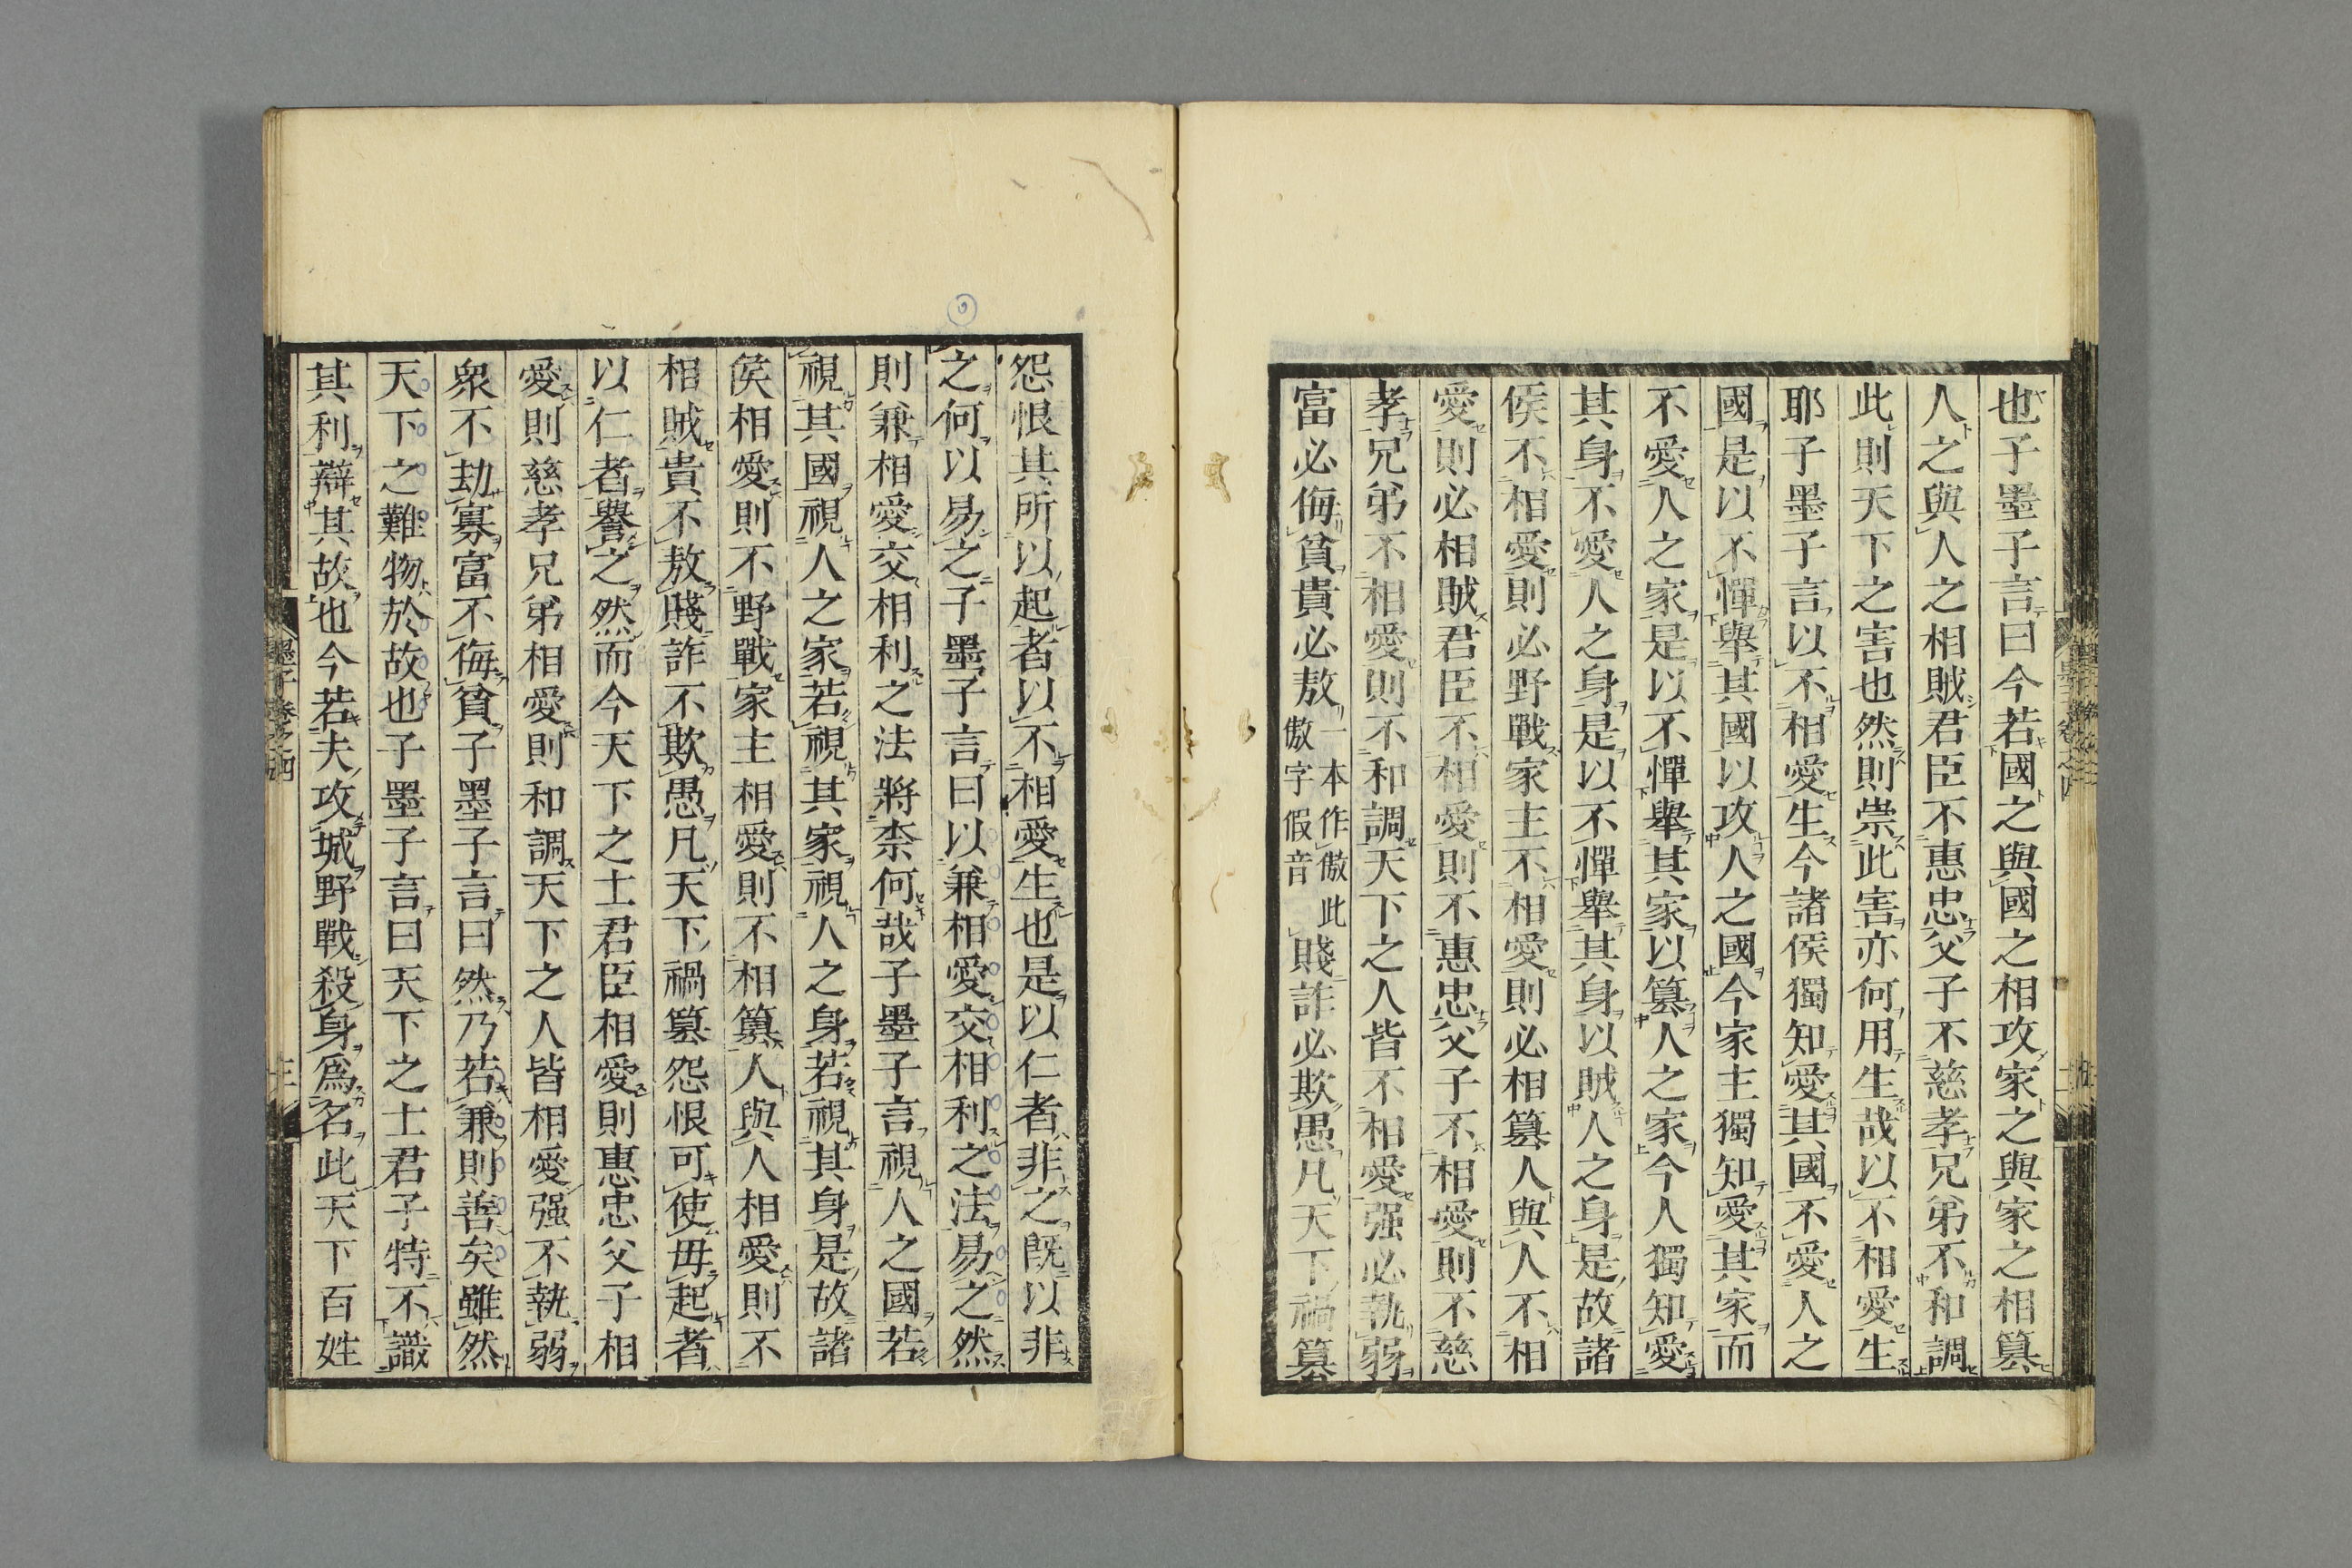 也子墨子言曰今若國之與國之相攻家之與家之相簒
人之與人之相賊君臣不惠忠父子不慈孝兄弟不和調
此則天下之害也然則崇此害亦何用生哉以不相愛生
耶子墨子言以不相愛生今諸侯獨知愛其國不愛人之
國是以不憚舉其國以攻人之國今家主獨知愛其家而
不愛人之家是以不憚舉其家以簒人之家今人獨知愛
其身不愛人之身是以不憚舉其身以賊人之身是故諸
侯不相愛則必野戰家主不相愛則必相簒人與人不相
愛則必相賊君臣不相愛則不惠忠父子不相愛則不慈
孝兄弟不相愛則不和調天下之人皆不相愛强必執弱
富必侮貧貴必敖一本作傲此傲字假音賤詐必欺愚凡天下禍簒
怨恨其所以起者以不相愛生也是以仁者非之既以非
之何以易之子墨子言曰以兼相愛交相利之法易之然
則兼相愛交相利之法將柰何哉子墨子言視人之國若
視其國視人之家若視其家視人之身若視其身是故諸
侯相愛則不野戰家主相愛則不相簒人與人相愛則不
相賊貴不敖賤詐不欺愚凡天下禍簒怨恨可使毋起者
以仁者譽之然而今天下之士君臣相愛則惠忠父子相
愛則慈孝兄弟相愛則和調天下之人皆相愛强不執弱
衆不劫寡富不侮貧子墨子言曰然乃若兼則善矣雖然
天下之難物於故也子墨子言曰天下之士君子特不識
其利辯其故也今若夫攻城野戰殺身爲名此天下百姓
墨子卷之四